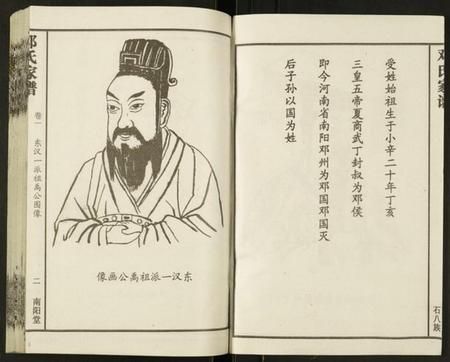 邓氏家谱
受姓始祖生于小辛二十年丁亥
三皇五帝夏商武丁封叔为邓侯
即今河南省南阳邓州为邓国邓国灭
后子孙以国为姓
石八族
邓氏家谱
卷一
东汉一派祖禹公图像
二
南阳堂
像画公禹祖派一汉东